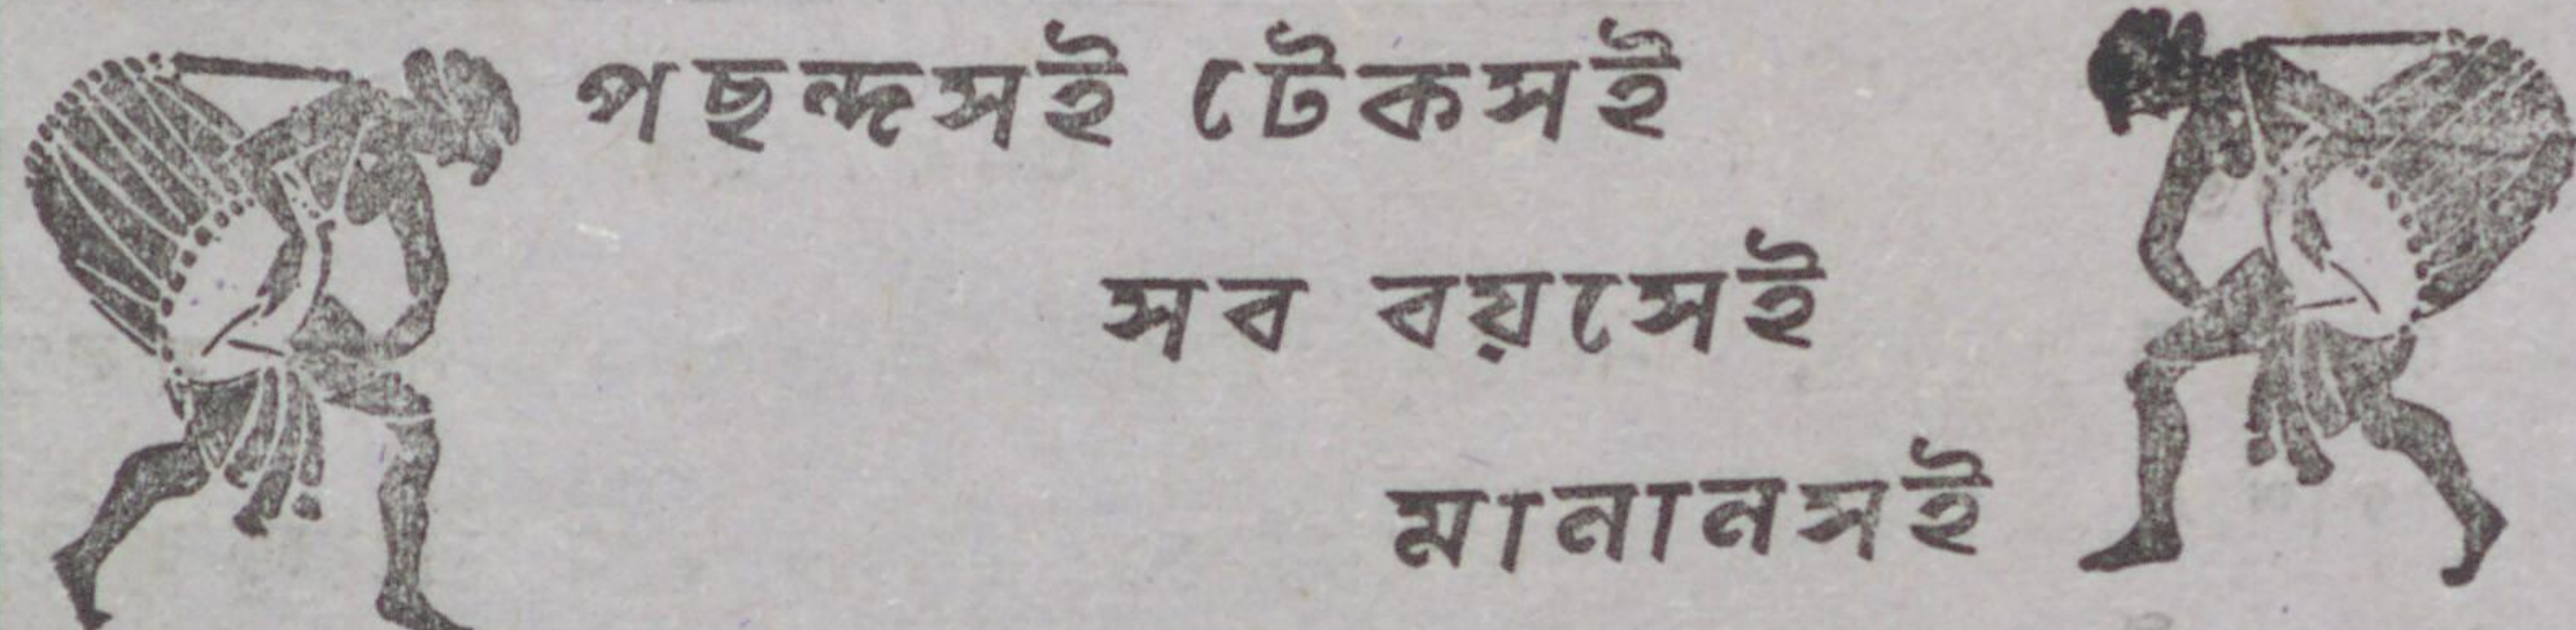 পছন্দসই টেকসই
সব বয়সেই
মানানসই